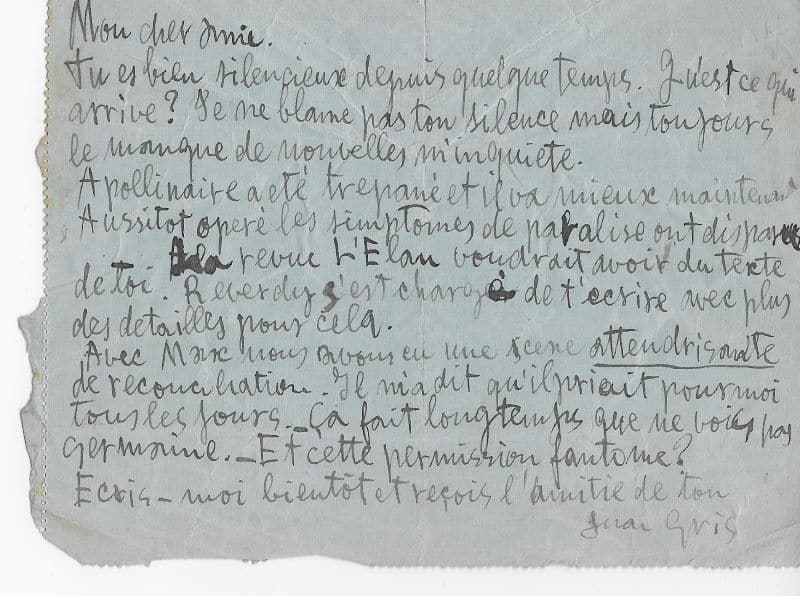 Mon cher Amie.
Tu es bien silencieux depuis quelque temps. Qu'est ce qui
arrive? Je ne blame pas ton silence mais toujours
le manque de nouvelles m'inquiete.
Apollinaire a eté trepané et il va mieux maintenant
Aussitot operé les simptomes de paralise ont disparus
la revue L'Elan voudrait avoir du texte
de toi. Reverdy s'est chargé de t'ecrire avec plus
des detailles pour cela.
Avec Max nous avons eu une scene attendrisante
de reconciliation. Il m'a dit qu'il priait pour moi
tous les jours._Ça fait longtemps que ne vois pas
Germaine._Et cette permission fantome?
Ecris-moi bientôt et reçois l'amitie de ton
Juan Gris